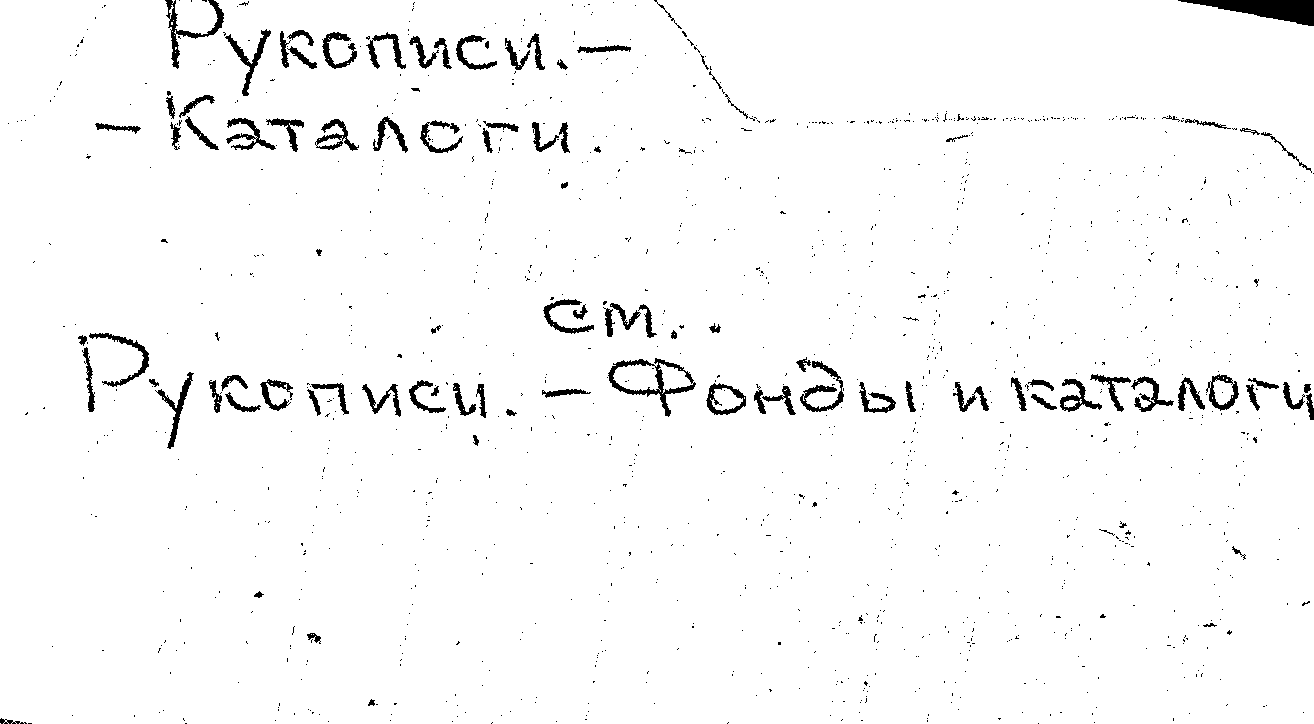 Рукописи. —
— Каталоги.
см.
Рукописи. — Фонды и каталоги